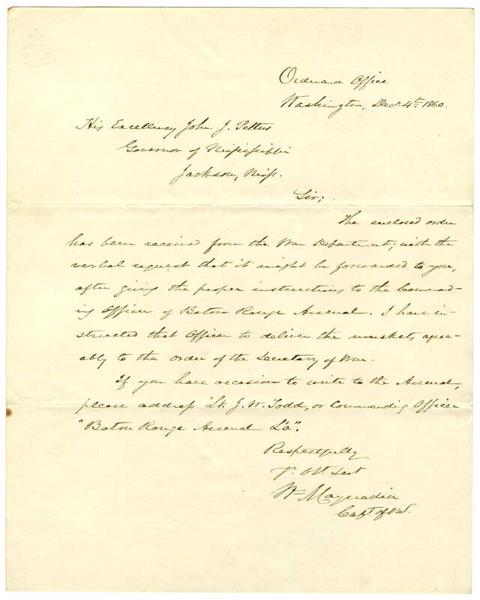 Ordnance Office
Washington, Dec. 4th 1860.
His Excellency John J. Pettus
Governor of Mississippi
Jackson, Miss.
Sir;
The enclosed order
has been received from the War Department; with the
verbal request that it might be forwarded to you,
after giving the proper instructions to the Command-
ing Officer of Baton Rouge Arsenal. I have in-
structed that Officer to deliver the muskets, agree-
ably to the order of the Secretary of War.
If you have occasion to write to the Arsenal,
please address "Lt. J. W. Todd, or Commanding Officer
"Baton Rouge Arsenal La".
Respectfully
Yr. Obt. Servt
Wm Maynadier
Capt of Ord.